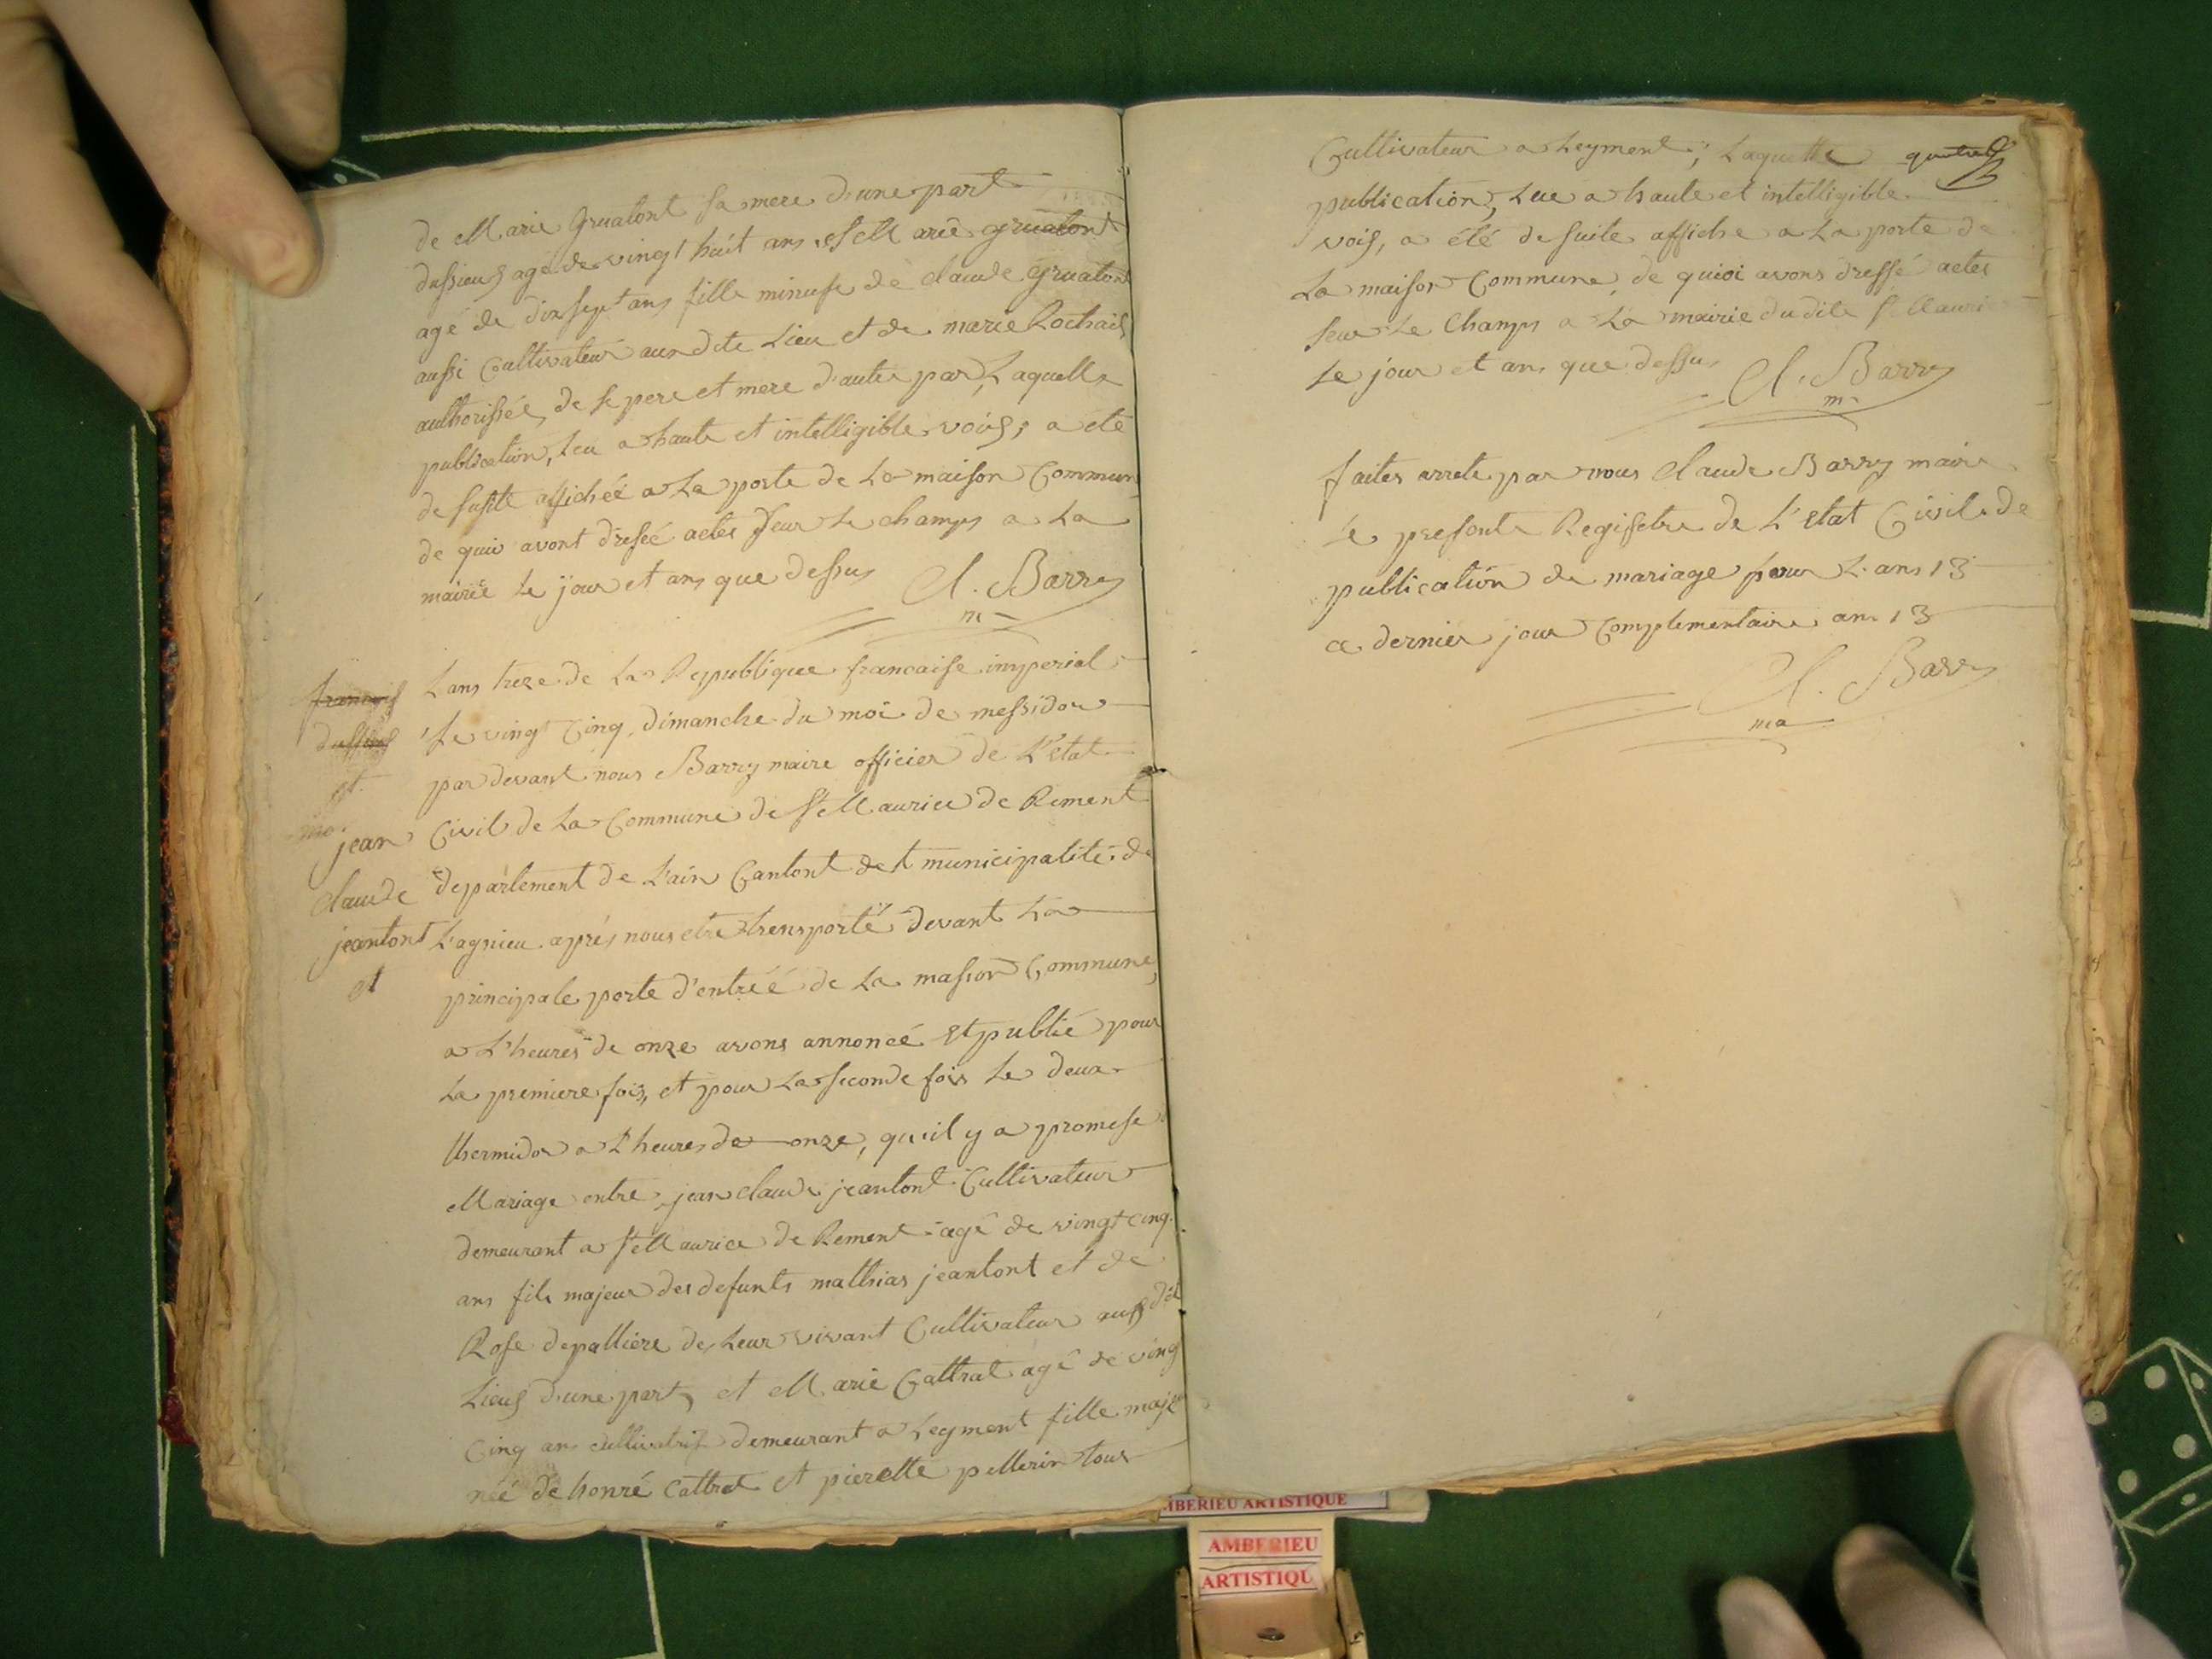 de Marie Gruatont sa mere d'une part
dussieuf agé de vingt huit ans, et Marie gruatont
agé de dix sept ans fille mineuse de claude gruatont
aussi Cultivateur aundite Lieu et de marie Rochaif
authorissée, de se pere et mere d'autre par, Laquelle
publication, leu a haute et intelligible voix; a eté
de suite affichée a La porte de La maison Commun
de quoi avont dressée actes seur Le champs a La
mairie Le jour et ans que dessus Cl. Barry
m
francois
dussieuf
et
jean
claude
jeantont
et
L'ans treze de La Republique francaise imperial
Le vingt Cinq, dimanche du moi de messidor
par devant nous Barry maire officier de L'Etat
Civil de La Commune de St Maurice de Rement
departement de L'ain Cantont de et municipalité de
Lagnieu après nous etre transporté devant La
principale porte d'entréé de La maison Commune,
a L'heures de onze avons annoncé Et publié pour
La premiere fois, et pour La seconde fois Le deux
thermidor a L'heures de onze, qu'il y a promese
Mariage entre jean claude jeantont Cultivateur
demeurant a St Maurice de Rement agé de vingt cinq
ans fils majeur des defunts mathias jeantont et de
Rose depalliere de Leur vivant Cultivateur aussdit
Lieuf d'une part, et Marie Cattrat agé de ving
Cinq ans cultivatrif demeurant a Leyment fille maje
née de honré Cattrat et pierette pellerin tous
Cultivateur a Leyment; Laquelle
publication, Lue a haute et intelligible
voif, a été de suite affiche a La porte de
La maison Commune, de quioi avons dressé actes
seur Le Champs a La mairie dudite St Mauri
Le jour et ans que dessus Cl. Barry
m
faites arrete par nous Claude Barry maire
Le presente Registre de L'etat Civil de
publication de mariage pour L'ans 13
ce dernier jour Complementaire ans 13
Cl. Barry
ma
AMBERIEU ARTISTIQUE
AMBERIEU
ARTISTIQU